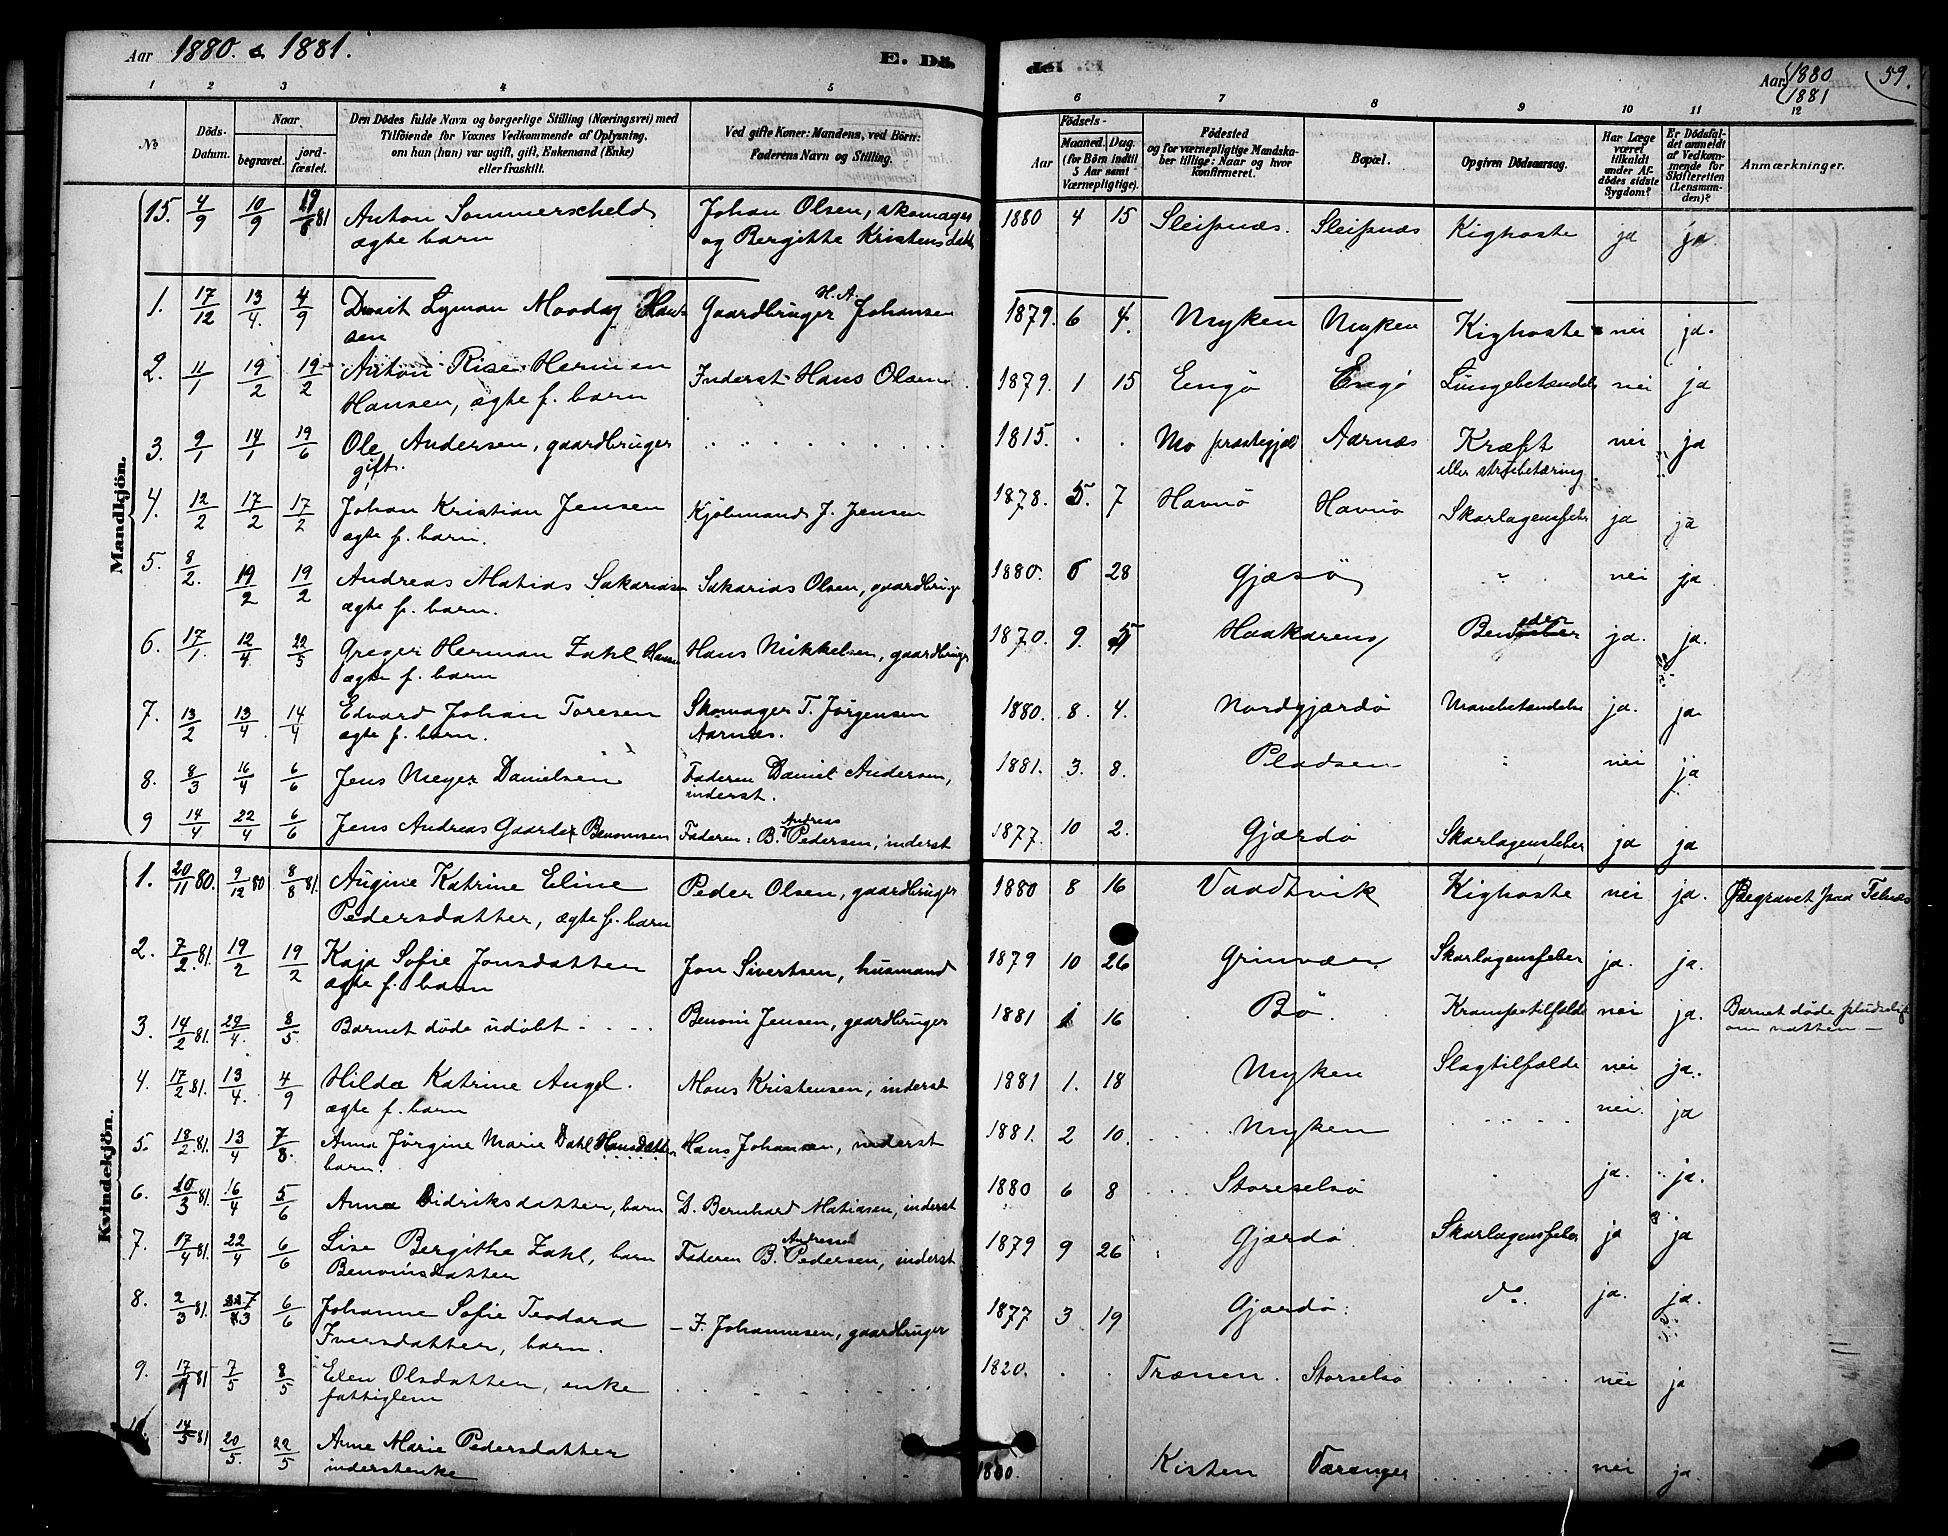 Aar 1880. & 1881.
E. Dö-
de.
Aar 1880
1881
59.
1 2 3 4 5 6 7 8 9 10 11 12
No
Döds-Datum.
Naar
begravet.
jord-fæstet.
Den Dödes fulde Navn og borgerlige Stilling (Næringsvei) med
Tilföiende for Voxnes Vedkommende af Oplysning,
om han (hun) var ugift, gift, Enkemand (Enke)
eller fraskilt.
Ved gifte Koner: Mandens, ved Börn:
Faderens Navn og Stilling.
Födsels-
Aar
Maaned. Dag.
(for Börn indtil
5 Aar samt
Værnepligtige).
Födested
og for værnepligtige Mandska-
ber tillige: Naar og hvor
konfirmeret.
Bopæl.
Opgiven Dödsaarsag.
Har Læge
været
tilkaldt
under Af-
dödes sidste
Sygdom?
Er Dödsfal-
det anmeldt
af Vedkom-
mende for
Skifteretten
(Lensman-
den)?
Anmærkninger.
Mandkjön.
15. 4/9 10/9 81 Anton Sommerscheld Johan Olsen, skomager 1880 4 15 Sleipnæs. Sleipnæs Kighoste ja ja.
ægte barn og Bergitte Kristensdatt
1. 17/12 13/4. 4/9 Dwait Lyman Mooday Han- Gaardbruger H. A. Johansen 1879. 6 4. Myken Myken Kighoste nei ja.
sen
2. 11/1 19/2 19/2 Anton Rise Herman Inderst Hans Olsen 1879. 1 15 Engö Engö Lungebetændelse nei ja
Hansen, ægte f. barn
3. 9/1 14/1 19/6 Ole Andersen, gaardbruger 1815. Mo præstegjæl Aarnæs Kræft nei ja
gift. eller strubetæring
4. 12/2 17/2 17/2 Johan Kristian Jensen Kjöbmand J. Jensen 1878. 5. 7 Havnö Havnö Skarlagensfeber ja ja
ægte f. barn.
5. 8/2. 19/2 19/2 Andreas Matias Sakariasen Sakarias Olsen, gaardbrug 1880. 28 Gjæsö nei ja.
ægte f. barn.
6. 17/1. 12/4 22/5 Greger Herman Zahl Hansen Hans Mikkelsen, gaardbruger 1870. 9. 5 Haakareng Ben ja. ja.
ægte f. barn
7. 13/2 13/4 14/4 Edvard Johan Toresen Skomager T. Jörgensen 1880. 8. 4. Nordgjærdö Mavebetændelse ja. ja.
ægte f. barn. Aarnæs.
8. 8/3 16/4 6/6 Jens Meyer Danielsen Faderen Daniel Andersen, 1881. 3. 8. Pladsen nei ja
inderst.
9 14/4 22/4 6/6 Jens Andreas Gaarder Benonisen Faderen: B. Andreas Pedersen, inderst 1877. 10 2. Gjærdö Skarlagensfeber ja ja
Kvindekjön.
1. 20/11 80. 9/12 80 8/8 81. Augine Katrine Eline Peder Olsen, gaardbruger 1880 8 16 Vaadtvik Kighoste nei ja. Begravet paa Felnæs
Pedersdatter, ægte f. barn
2. 7/2. 81. 19/2 19/2 Kaja Sofie Jonsdatter Jon Sivertsen, husmand 1879 10 26 Grinvær Skarlagensfeber ja. ja.
ægte f. barn
3. 14/2 81. 22/4. 8/5 Barnet döde udöbt Benoni Jensen, gaardbruger 1881 1 16 Bö. Krampetilfælde nei ja. Barnet döde pludselig
om natten –
4. 17/2 81. 13/4. 4/9 Hilda Katrine Angel. Mons Kristensen, inderst 1881 1. 18 Myken Slagtilfælde nei ja.
ægte f. barn
5. 18/2. 81. 13/4 7/8. Anna Jörgine Marie Dahl Hansdatter Hans Johansen, inderst 1881. 2 10. Myken nei. ja
barn.
6. 10/3 81 16/4 5/6 Anna Didriksdatter, barn D. Bernhard Matiasen, inderst 1880 6 8 Storeselsö ja. ja.
7. 17/4 81. 22/4 6/6 Lise Bergithe Zahl, barn Faderen B. Andreas Pedersen, inderst 1879 9 26 Gjærdö Skarlagensfeber ja ja
Benonisdatter
8. 2/3 81. 6/6 Johanne Sofie Teodara – I. Johannesen, gaardbruger 1877 3 19 Gjærdö. do. ja. ja.
Iversdatter, barn.
9. 17/ 81 7/5 8/5 Elen Olsdatter, enke 1820. Trænen. Storselsö nei ja
fattiglem
14/3 81 20/5. 22/5 Anne Marie Pedersdatter Kisten Varanger nei ja.
inderstenke